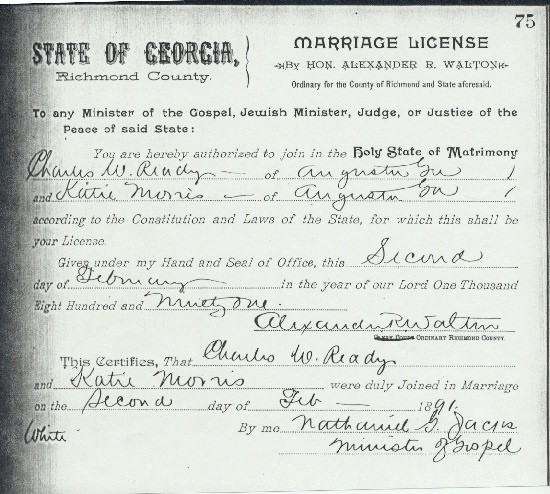 75
STATE OF GEORGIA,
Richmond County.
MARRIAGE LICENSE
BY HON. ALEXANDER R. WALTON
Ordinary for the County of Richmond and State aforesaid.
To any Minister of the Gospel, Jewish Minister, Judge, or Justice of the
Peace of said State:
You are hereby authorized to join in the Holy State of Matrimony
Charles W. Ready of Augusta Ga
and Katie Morris of Augusta Ga
according to the Constitution and Laws of the State, for which this shall be
your License.
Given under my Hand and Seal of Office, this Second
day of February in the year of our Lord One Thousand
Eight Hundred and Ninety one.
Alexander R Walton
ORDINARY RICHMOND COUNTY.
This Certifies, That Charles W. Ready
and Katie Morris were duly Joined in Marriage
on the Second day of Feb 1891.
White By me Nathaniel G.
Minister of Gospel